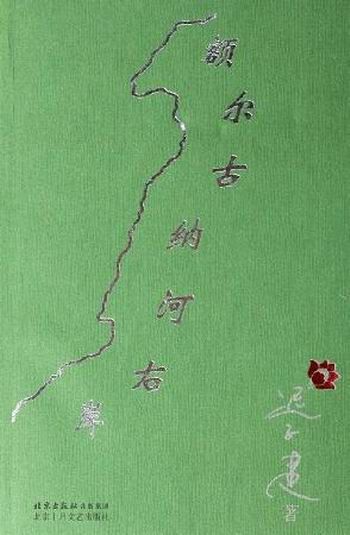 额尔古纳河右岸
迟子建 著
北京出版社出版集团
北京十月文艺出版社